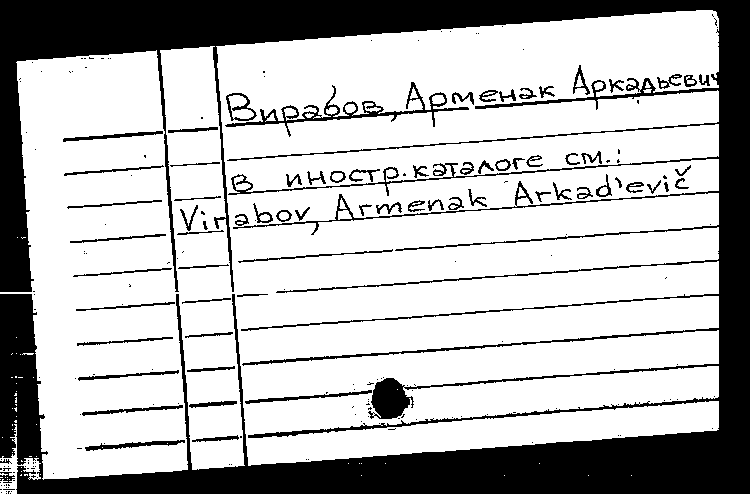 Вирабов, Арменак Аркадьевич
в иностр. каталоге см.:
Virabov, Armenak Arkad'evič